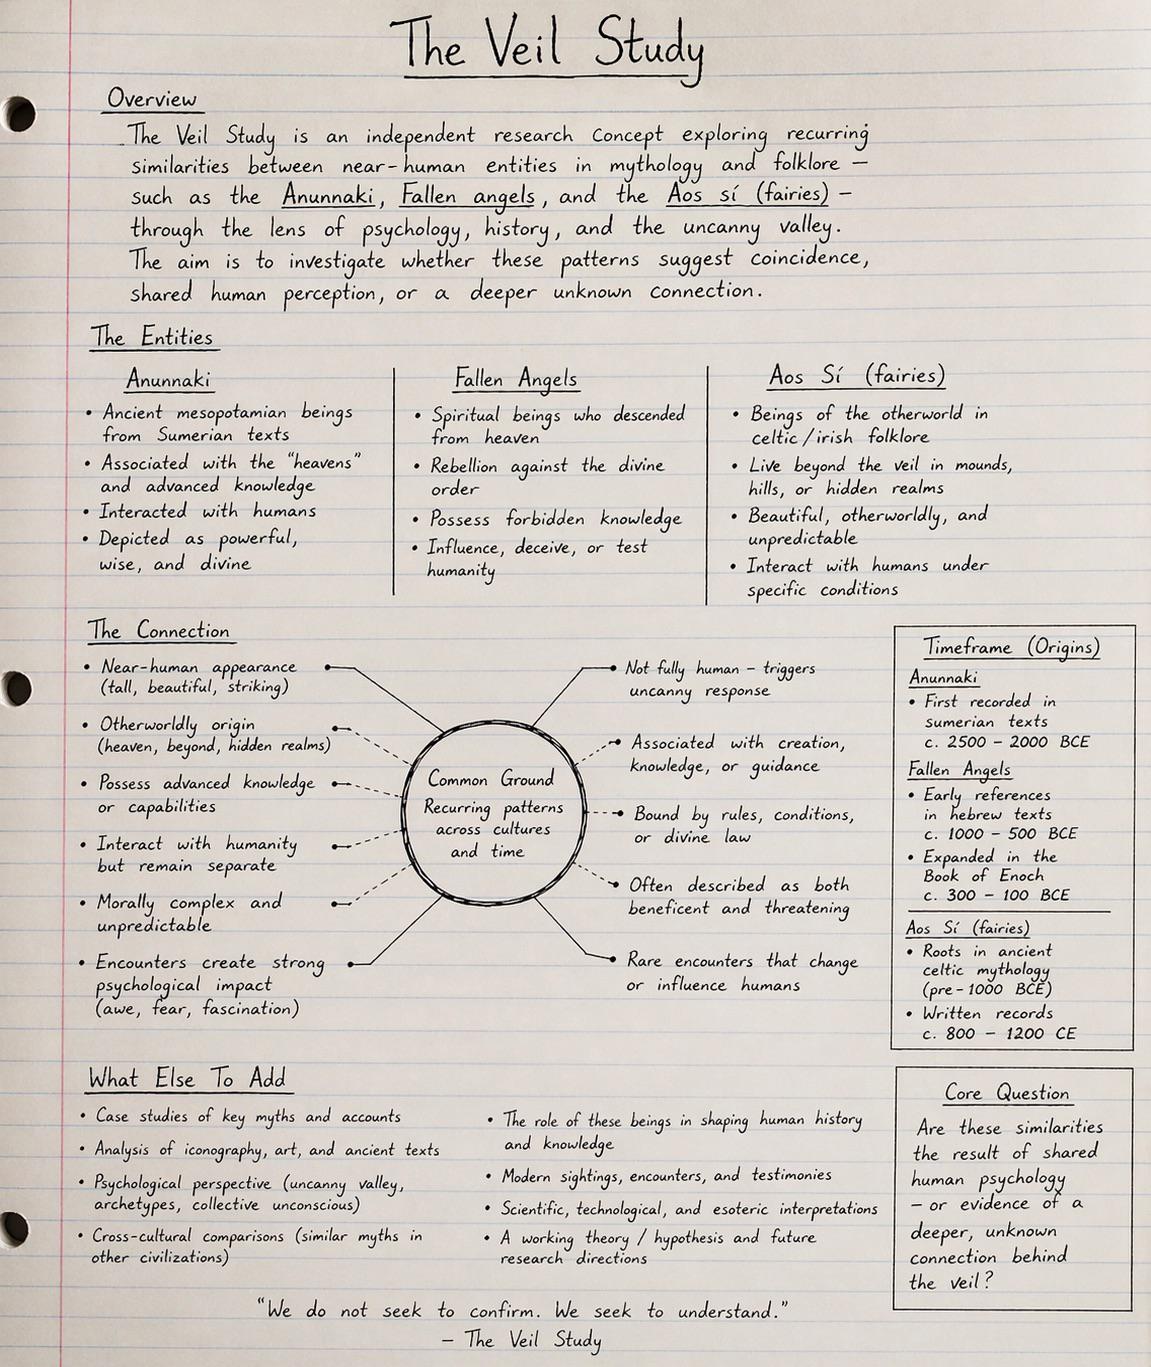 The Veil Study
Overview
The Veil Study is an independent research concept exploring recurring
similarities between near-human entities in mythology and folklore —
such as the Anunnaki, Fallen angels, and the Aos sí (fairies) —
through the lens of psychology, history, and the uncanny valley.
The aim is to investigate whether these patterns suggest coincidence,
shared human perception, or a deeper unknown connection.
The Entities
Anunnaki
• Ancient mesopotamian beings
from Sumerian texts
• Associated with the "heavens"
and advanced knowledge
• Interacted with humans
• Depicted as powerful,
wise, and divine
Fallen Angels
• Spiritual beings who descended
from heaven
• Rebellion against the divine
order
• Possess forbidden knowledge
• Influence, deceive, or test
humanity
Aos Sí (fairies)
• Beings of the otherworld in
celtic/irish folklore
• Live beyond the veil in mounds,
hills, or hidden realms
• Beautiful, otherworldly, and
unpredictable
• Interact with humans under
specific conditions
The Connection
• Near-human appearance
(tall, beautiful, striking)
• Otherworldly origin
(heaven, beyond, hidden realms)
• Possess advanced knowledge
or capabilities
• Interact with humanity
but remain separate
• Morally complex and
unpredictable
• Encounters create strong
psychological impact
(awe, fear, fascination)
Common Ground
Recurring patterns
across cultures
and time
Not fully human – triggers
uncanny response
Associated with creation,
knowledge, or guidance
Bound by rules, conditions,
or divine law
Often described as both
beneficent and threatening
Rare encounters that change
or influence humans
Timeframe (Origins)
Anunnaki
• First recorded in
sumerian texts
c. 2500 – 2000 BCE
Fallen Angels
• Early references
in hebrew texts
c. 1000 – 500 BCE
• Expanded in the
Book of Enoch
c. 300 – 100 BCE
Aos Sí (fairies)
• Roots in ancient
celtic mythology
(pre-1000 BCE)
• Written records
c. 800 – 1200 CE
What Else To Add
• Case studies of key myths and accounts
• Analysis of iconography, art, and ancient texts
• Psychological perspective (uncanny valley,
archetypes, collective unconscious)
• Cross-cultural comparisons (similar myths in
other civilizations)
• The role of these beings in shaping human history
and knowledge
• Modern sightings, encounters, and testimonies
• Scientific, technological, and esoteric interpretations
• A working theory / hypothesis and future
research directions
Core Question
Are these similarities
the result of shared
human psychology
– or evidence of a
deeper, unknown
connection behind
the veil?
"We do not seek to confirm. We seek to understand."
– The Veil Study